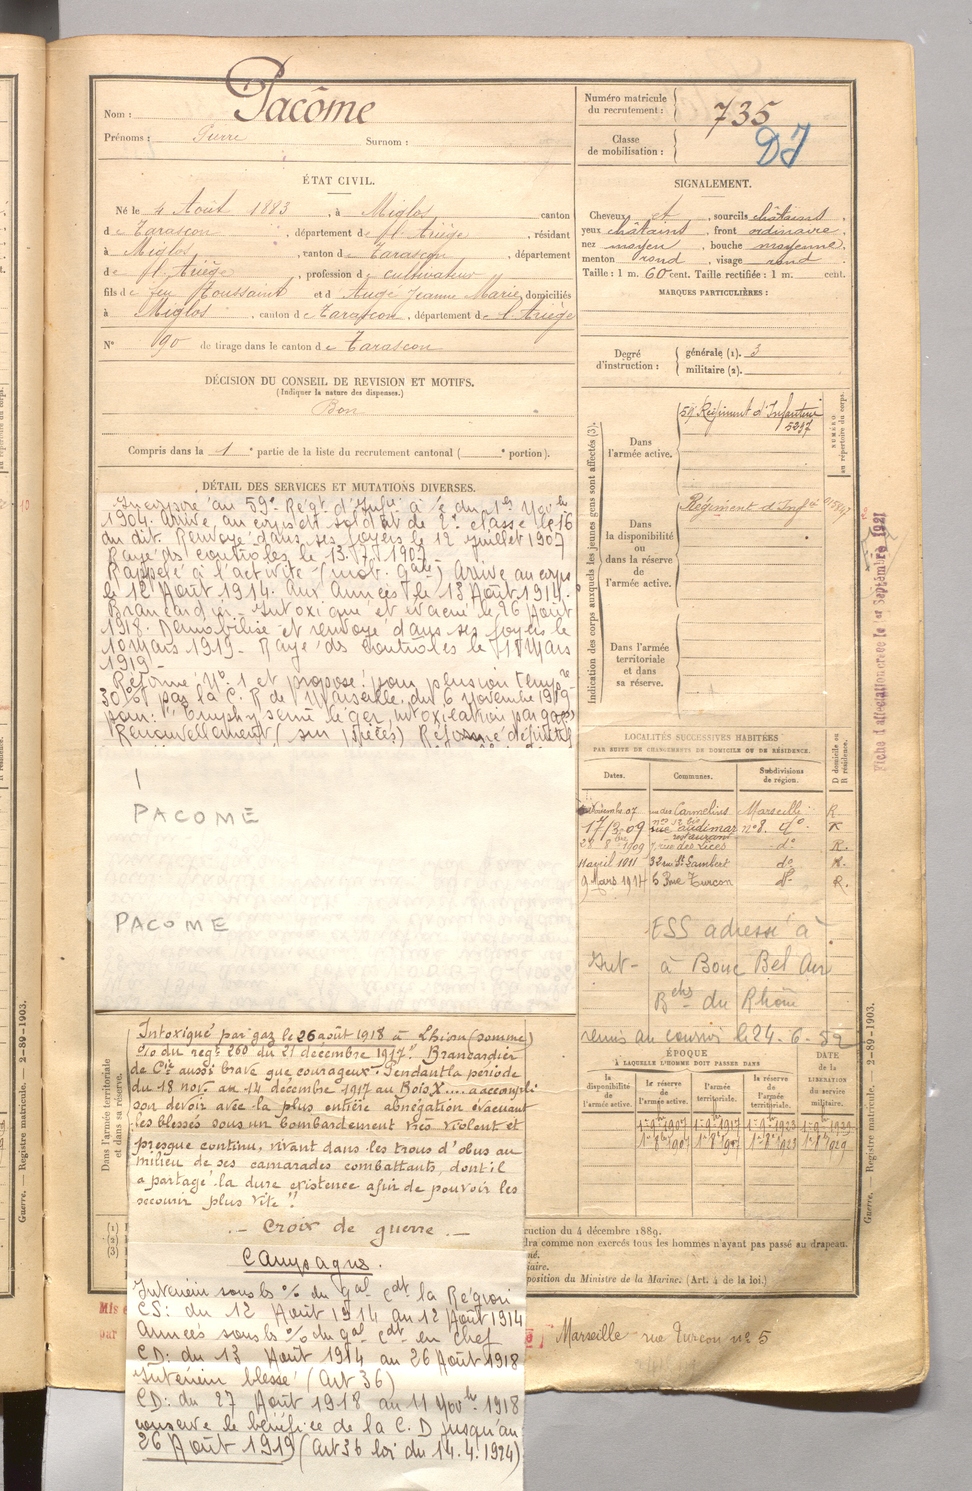 Nom : Pacôme
Prénoms : Pierre Surnom :
Numéro matricule du recrutement : 735
Classe de mobilisation :
DI
ÉTAT CIVIL.
Né le 4 Août 1883, à Miglos canton
de Tarascon, département de l'Ariège, résidant
à Miglos, canton de Tarascon, département
de l'Ariège, profession de cultivateur
fils de feu Toussaint et de Augé Jeanne Marie, domiciliés
à Miglos, canton de Tarascon, département de l'Ariège
N° 90 de tirage dans le canton de Tarascon
DÉCISION DU CONSEIL DE REVISION ET MOTIFS.
(Indiquer la nature des dispenses.)
Bon
Compris dans la 1e partie de la liste du recrutement cantonal ( e portion).
DÉTAIL DES SERVICES ET MUTATIONS DIVERSES.
Incorporé au 59e Régt d'Infie à c. du 1er Novbre
1904. Arrivé au corps et soldat de 2e classe le 16
du dit. Renvoyé dans ses foyers le 12 juillet 1907
Rayé des contrôles le 13.7.1907
Rappelé à l'activité (mob. gale) Arrivé au corps
le 12 Août 1914. Aux Armées le 13 Août 1914.
Brancardier. Intoxiqué et évacué le 26 Août
1918. Démobilisé et renvoyé dans ses foyers le
10 Mars 1919. Rayé des contrôles le 11 Mars
1919 -
Réformé N° 1 et proposé pour pension tempre
30% par la C. R de Marseille du 6 Novembre 1919
pour: "Emphysème léger, intoxication par gaz"
Renouvellement (sur pièces) Réforme définitive
PACOME
PACOME
Intoxiqué par gaz le 26 août 1918 à Lhiou (Somme)
o/o du regt 260 du 21 décembre 1917 " Brancardier
de Cie aussi brave que courageux. Pendant la période
du 18 nov. au 14 décembre 1917 au Bois X.... a accompli
son devoir avec la plus entière abnégation évacuant
les blessés sous un bombardement très violent et
presque continu, vivant dans les trous d'obus au
milieu de ses camarades combattants, dont il
a partagé la dure existence afin de pouvoir les
secourir plus vite "
.- Croix de guerre .-
Campagnes.
Intérieur sous les % du gal Cdt la Région
CS: du 12 Août 1914 au 12 Août 1914
Armées sous les % du gal cdt en chef
CD: du 13 Août 1914 au 26 Août 1918
Intérieur blessé (Art 36)
CD: du 27 Août 1918 au 11 Novbre 1918
conserve le bénéfice de la C. D jusqu'au
26 Août 1919 (Art 36 loi du 14.4.1924)
SIGNALEMENT.
Cheveux et, sourcils châtains,
yeux châtains, front ordinaire,
nez moyen, bouche moyenne,
menton rond, visage rond.
Taille : 1 m. 60 cent. Taille rectifiée : 1 m. cent.
MARQUES PARTICULIÈRES :
Degré d'instruction :
générale (1). 3
militaire (2).
Indication des corps auxquels les jeunes gens sont affectés (3).
NUMÉRO au répertoire du corps.
Dans l'armée active.
59e Régiment d'Infanterie
5297
Dans la disponibilité ou dans la réserve de l'armée active.
Régiment d'Infie
Dans l'armée territoriale et dans sa réserve.
Fiche d'affectation créée le 1er Septembre 1921
LOCALITÉS SUCCESSIVES HABITÉES
PAR SUITE DE CHANGEMENTS DE DOMICILE OU DE RÉSIDENCE.
Dates. Communes. Subdivisions de région. D domicile ou R résidence.
Novembre 07 rue des Carmelins Marseille R
17/3/09 rue Audimar n° 8. do R
restaurant
1909 rue des Lices do R.
11 avril 1911 32 rue St Lambert do R.
9 Mars 1914 6 Rue Turcon do R.
ESS adressé à
Int- à Bouc Bel Air
Bches du Rhône
remis au courrier le 24-6-52
ÉPOQUE
À LAQUELLE L'HOMME DOIT PASSER DANS
DATE DE LA LIBÉRATION du service militaire.
la disponibilité de l'armée active. la réserve de l'armée active. l'armée territoriale. la réserve de l'armée territoriale.
1er 9bre 1907 1er 9bre 1917 1er 9bre 1923 1er 9bre 1929
1er 8bre 1907 1er 8bre 1917 1er 8bre 1923 1er 8bre 1929
Dans l'armée territoriale et dans sa réserve.
(1)
(2)
(3)
ruction du 4 décembre 1889.
dra comme non exercés tous les hommes n'ayant pas passé au drapeau.
né.
iaire.
position du Ministre de la Marine. (Art. 4 de la loi.)
Mis
par
Marseille rue Turcon n° 5
Guerre. — Registre matricule. — 2-89-1903.
Guerre. — Registre matricule. — 2-89-1903.